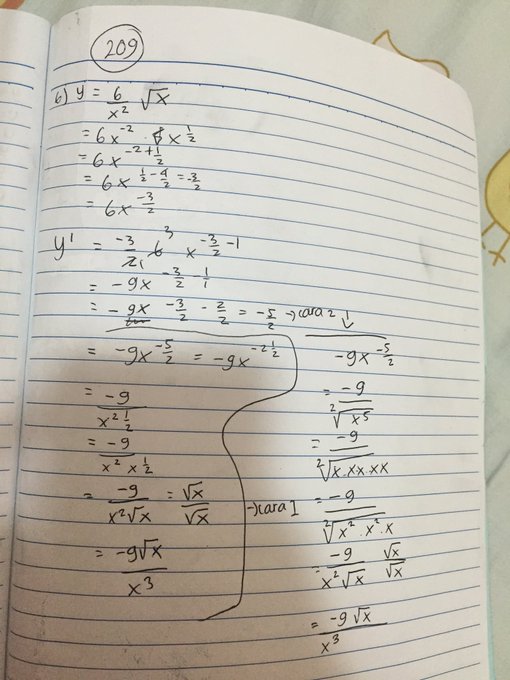 209
6) y = 6/x² √x
= 6x⁻² · x^(1/2)
= 6x^(-2+1/2)
= 6x^(1/2 - 4/2 = -3/2)
= 6x^(-3/2)
y' = -3/2₁ 6³ x^(-3/2 - 1)
= -9x^(-3/2 - 1/1)
= -9x^(-3/2 - 2/2 = -5/2) → cara 2 ↓
= -9x^(-5/2) = -9x^(-2 1/2)
= -9/x^(2 1/2)
= -9/x² x^(1/2)
= -9/x²√x = √x/√x → cara 1
= -9√x/x³
-9x^(-5/2)
= -9/²√x⁵
= -9/²√x.xx.xx
= -9/²√x².x².x
= -9/x²√x √x/√x
= -9√x/x³